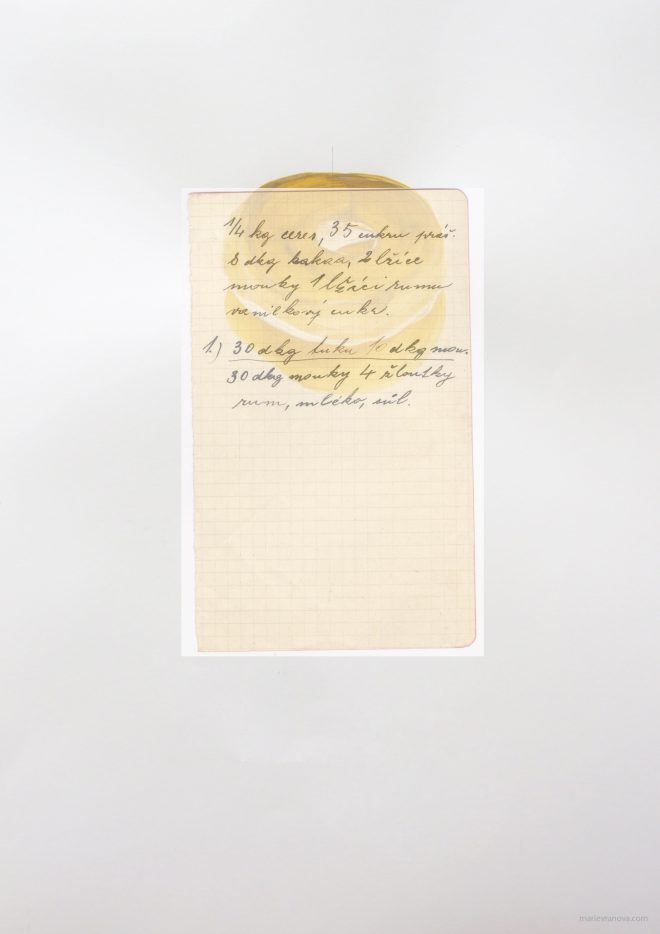 1/4 kg ceres, 35 cukru práš.
8 dkg kakaa, 2 lžíce
mouky 1 lžíci rumu
vanilkový cukr.
1.) 30 dkg tuku 10 dkg mou.
30 dkg mouky 4 žloutky
rum, mléko, sůl.
marievranova.com